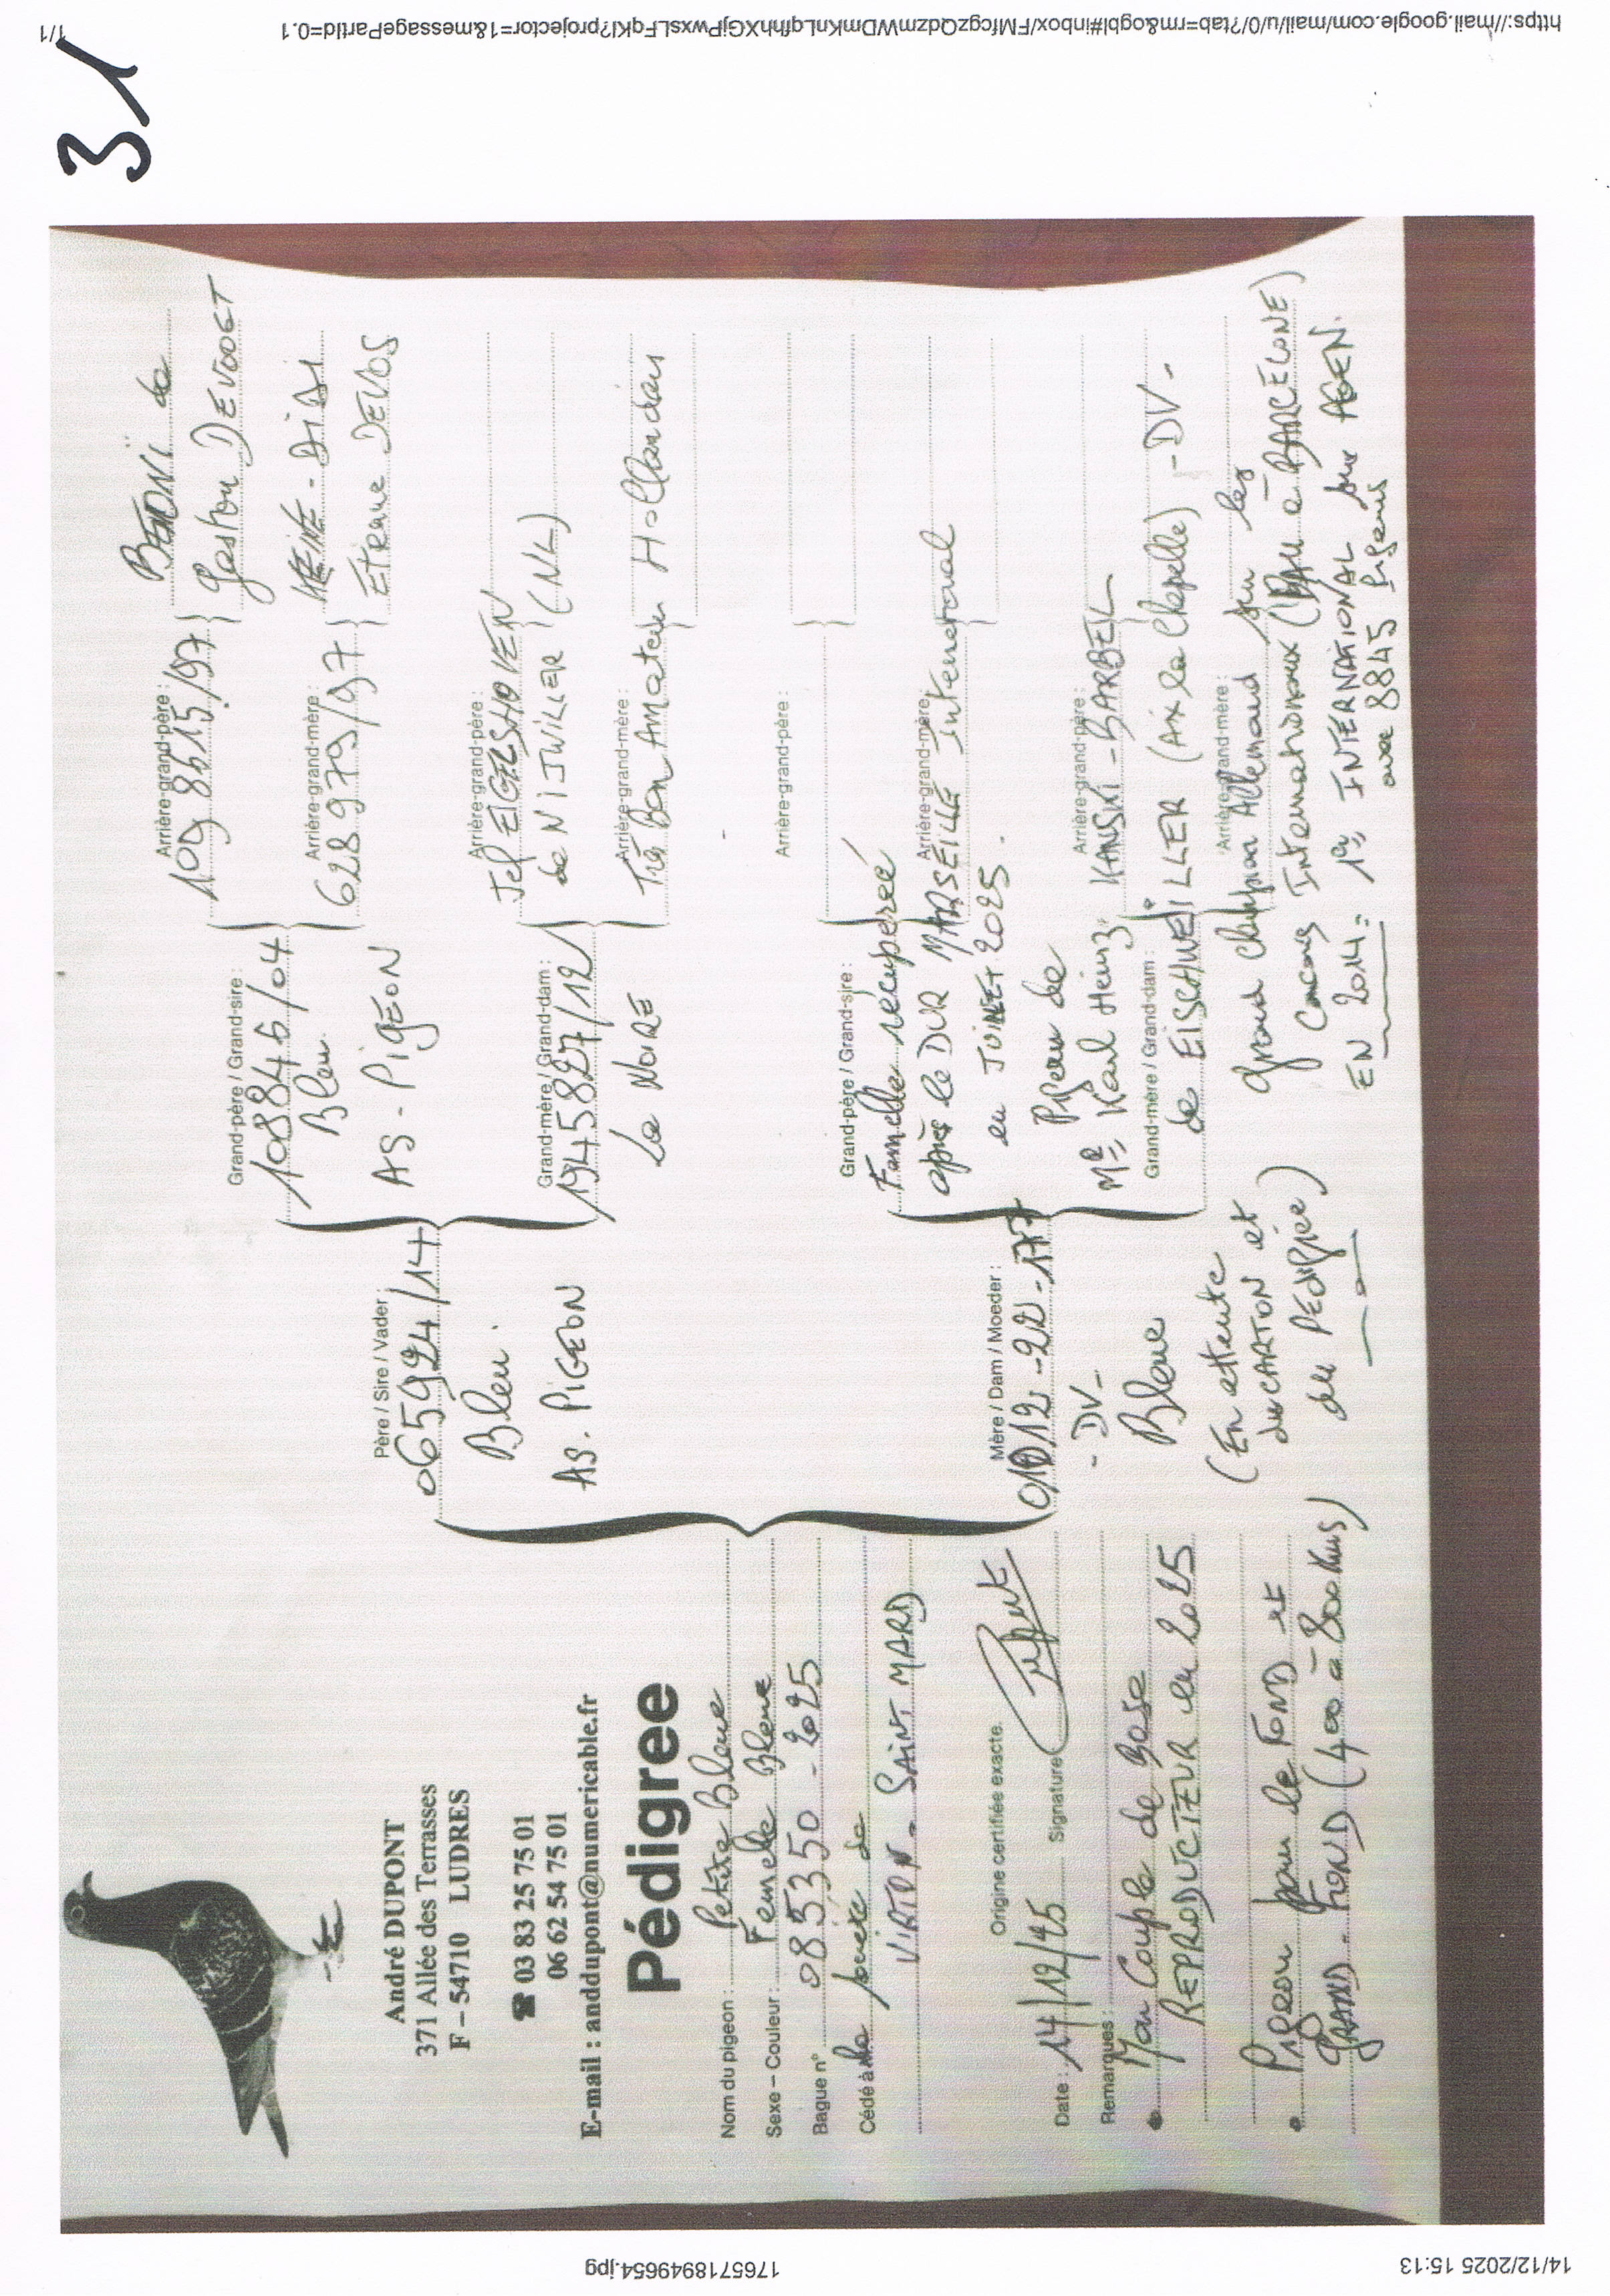 14/12/2025 15:13
1765718949654.jpg
31
André DUPONT
371 Allée des Terrasses
F – 54710 LUDRES
☎ 03 83 25 75 01
06 62 54 75 01
E-mail : anddupont@numericable.fr
Pédigree
Nom du pigeon : Petite Bleue
Sexe – Couleur : Femelle Bleue
Bague n° 085350 - 2025
Cédé à la vente de
VIRTON - SAINT MARD
Origine certifiée exacte.
Date : 14/12/25 Signature
Remarques :
• Mon Couple de Base
REPRODUCTEUR en 2025
• Pigeon pour le FOND et
GRAND - FOND (400 à 800 Kms)
Père / Sire / Vader :
065924/14
Bleu.
AS. PIGEON
Mère / Dam / Moeder :
01012-22-177
- DV -
Bleue
(En attente
du CARTON et
du PEDigree)
Grand-père / Grand-sire :
108846/04
Bleu.
AS - PIGEON
Grand-mère / Grand-dam :
1945827/12
La NOIRE
Grand-père / Grand-sire :
Femelle récupérée
après le DUR MARSEILLE International
en JUILLET 2025.
Pigeon de
Mr Karl Heinz KANSKI - BARBEL
Grand-mère / Grand-dam :
de EISCHWEILLER (Aix la Chapelle) - DV -
Grand Champion Allemand sur les
Concours Internationaux (PAU à BARCELONE)
EN 2014: 1er INTERNATIONAL sur AGEN.
avec 8845 Pigeons
Arrière-grand-père :
109 8615/97
BEDONI de
Gaston DEVOOGT
Arrière-grand-mère :
628979/97
REINE - DIDI
Etienne DEVOS
Arrière-grand-père :
Jef EIGELSHOVEN
de NIJWILLER (NL)
Arrière-grand-mère :
Très Bon Amateur Hollandais
Arrière-grand-père :
Arrière-grand-mère :
Arrière-grand-père :
Arrière-grand-mère :
https://mail.google.com/mail/u/0/?tab=rm&ogbl#inbox/FMfcgzQdzmWDmKnLqfhhXGjPwxsLFqKl?projector=1&messagePartId=0.1
1/1